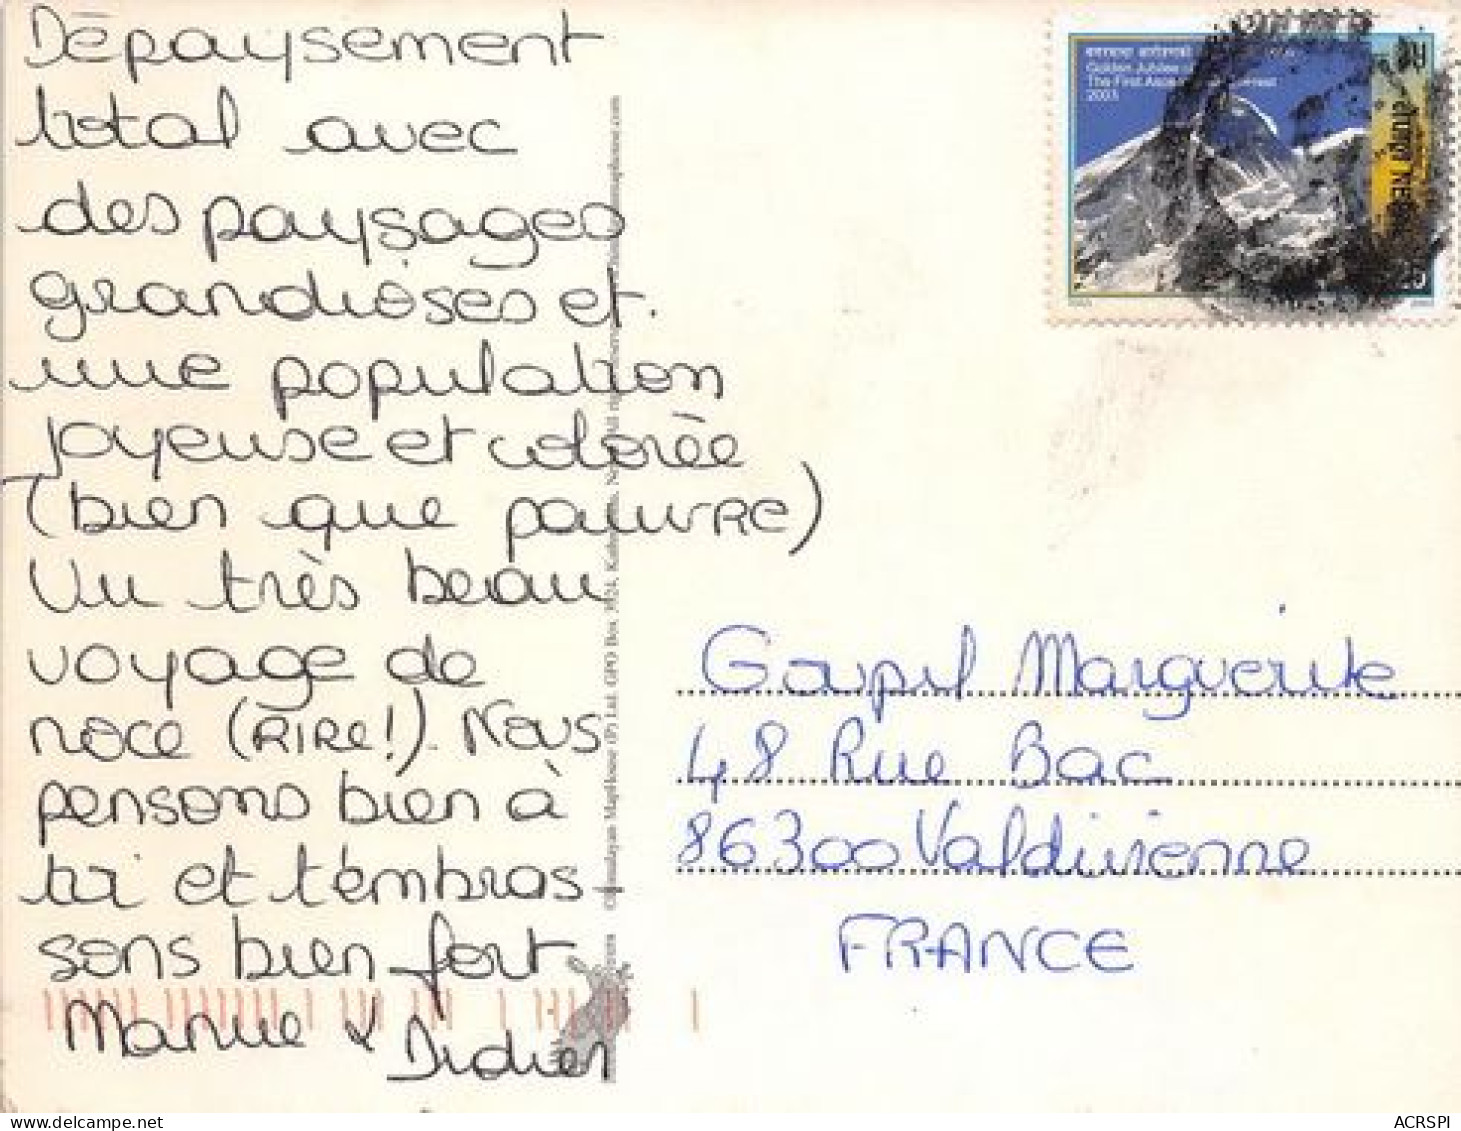 Dépaysement
total avec
des paysages
grandioses et
une population
joyeuse et colorée
(bien que pauvre)
Un très beau
voyage de
noce (RIRe!). Nous
pensons bien à
toi et t'embras-
sons bien fort
Manue & Didier
Golden Jubilee
The First Asce
2003
Goupil Marguerite
48 Rue Bac
86300 Valdivienne
FRANCE
Himalayan MapHouse (P) Ltd. GPO Box
ACRSPI